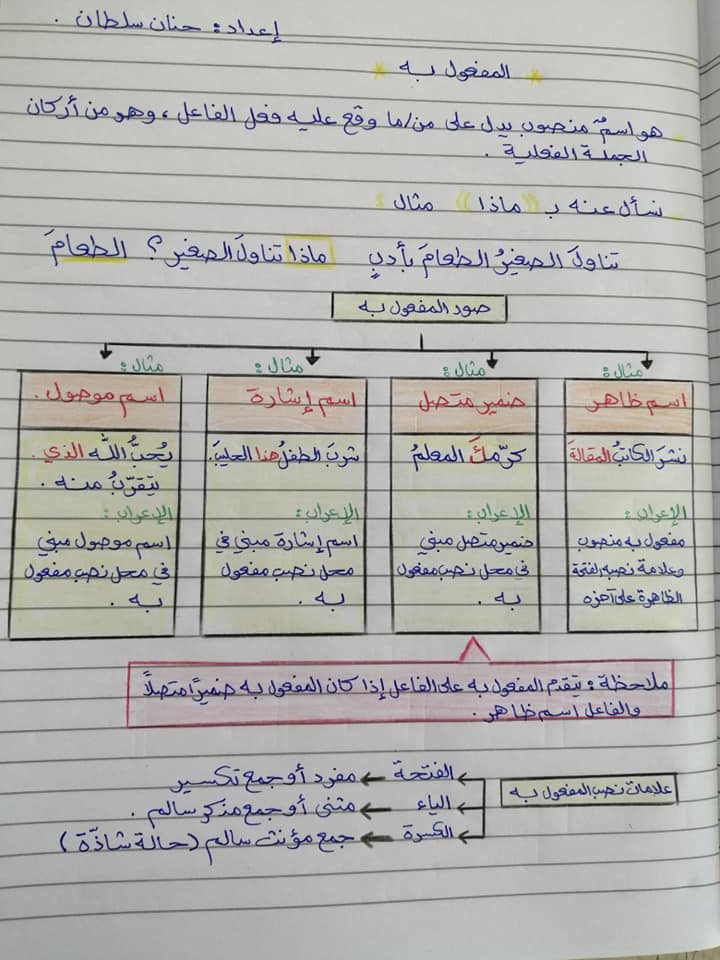 إعداد: حنان سلطان .
* المفعول به *
هو اسمٌ منصوب يدل على من/ما وقع عليه فعل الفاعل، وهو من أركان
الجملة الفعلية .
نسأل عنه بـ ((ماذا)) مثال :
تناولَ الصغيرُ الطعامَ بأدبٍ ماذا تناولَ الصغير؟ الطعامَ
صور المفعول به
مثال:
اسم ظاهر
نشرَ الكاتبُ المقالةَ
الإعراب:
مفعول به منصوب
وعلامة نصبه الفتحة
الظاهرة على آخره
مثال:
ضمير متصل
كرّمكَ المعلمُ
الإعراب:
ضمير متصل مبني
في محل نصب مفعول
به .
مثال:
اسم إشارة
شربَ الطفلُ هذا الحليبَ.
الإعراب:
اسم إشارة مبني في
محل نصب مفعول
به .
مثال:
اسم موصول .
يُحبُّ اللّه الذي
يتقرّبُ منه .
الإعراب:
اسم موصول مبني
في محل نصب مفعول
به .
ملاحظة: يتقدم المفعول به على الفاعل إذا كان المفعول به ضميرًا متصلاً
والفاعل اسم ظاهر .
علامات نصب المفعول به
الفتحة ← مفرد أو جمع تكسير
الياء ← مثنى أو جمع مذكر سالم .
الكسرة ← جمع مؤنث سالم (حالة شاذّة)